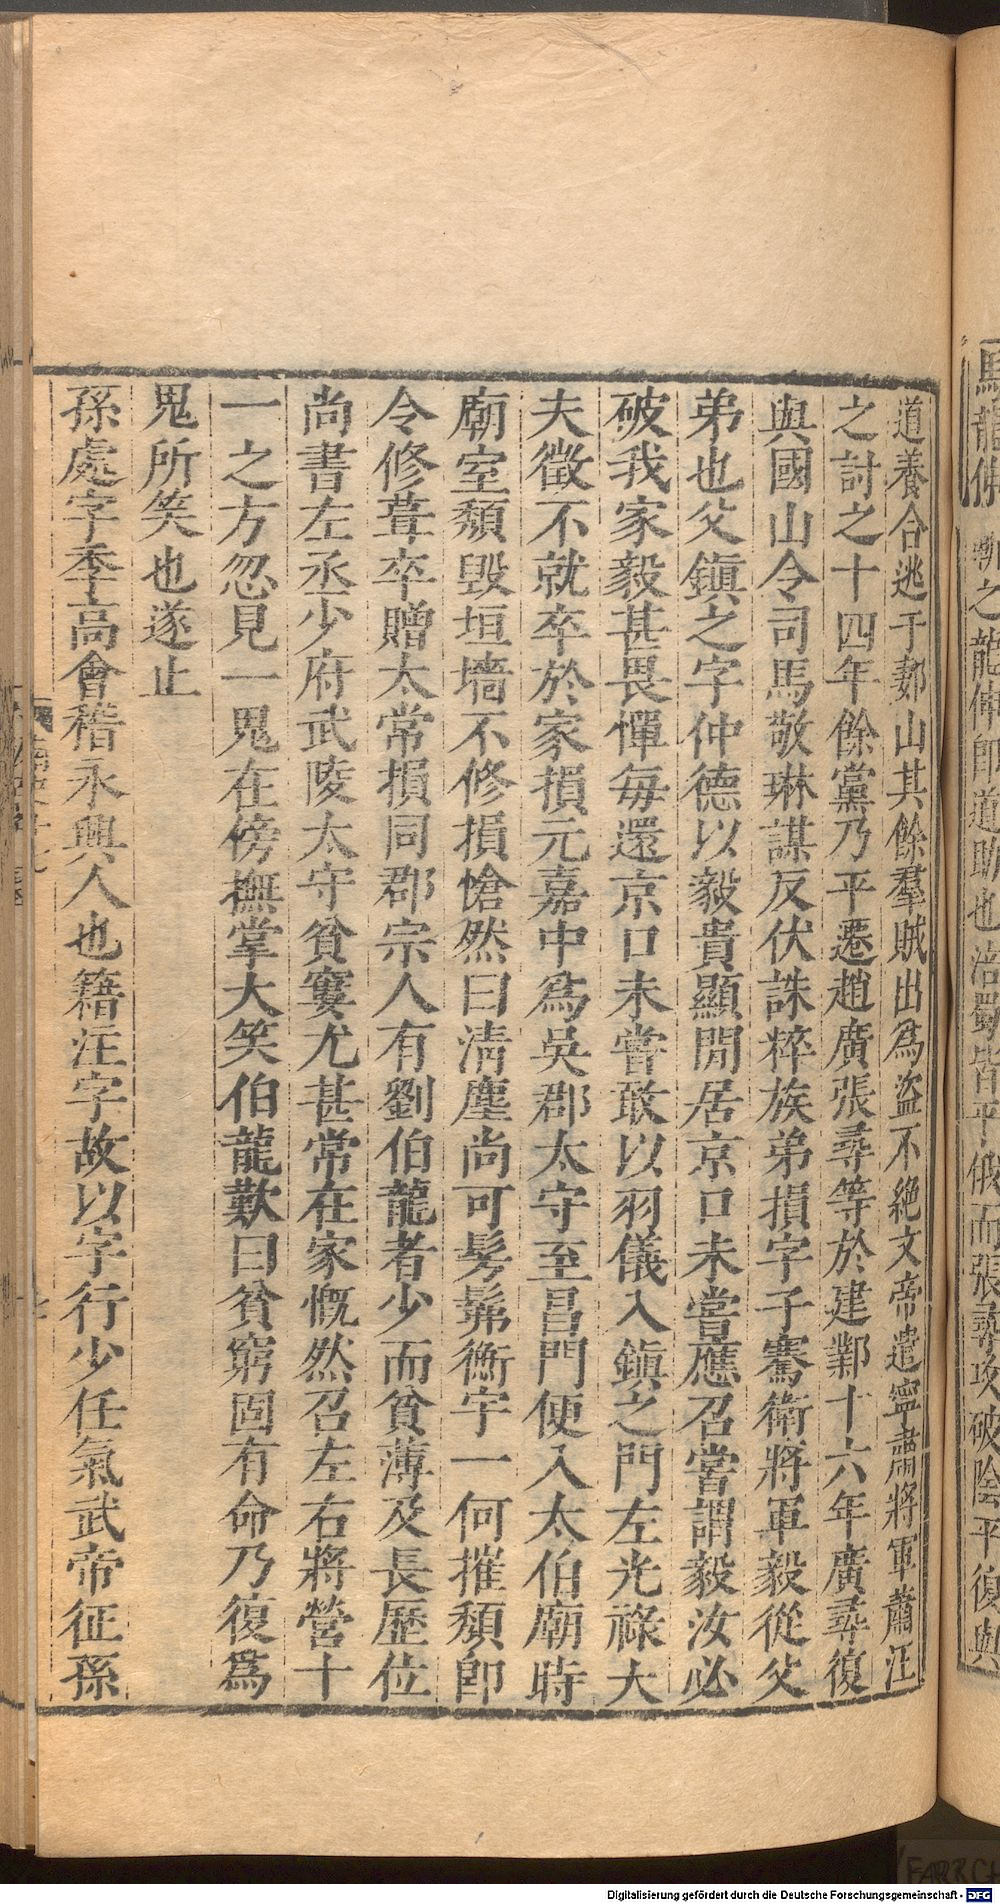 馬龍伸
斬之龍伸即道助也涪蜀皆平俄而張尋攻破陰平復與
道養合逃于郪山其餘羣賊出爲盜不絕文帝遣寧肅將軍蕭汪
之討之十四年餘黨乃平遷趙廣張尋等於建鄴十六年廣尋復
與國山令司馬敬琳謀反伏誅粹族弟損字子騫衛將軍毅從父
弟也父鎭之字仲德以毅貴顯閒居京口未嘗應召嘗謂毅汝必
破我家毅甚畏憚每還京口未嘗敢以羽儀入鎭之門左光祿大
夫徵不就卒於家損元嘉中爲吳郡太守至昌門便入太伯廟時
廟室頹毀垣墻不修損愴然曰清塵尚可髣髴衡宇一何摧頹卽
令修葺卒贈太常損同郡宗人有劉伯龍者少而貧薄及長歷位
尚書左丞少府武陵太守貧窶尤甚常在家慨然召左右將營十
一之方忽見一鬼在傍撫掌大笑伯龍歎曰貧窮固有命乃復爲
鬼所笑也遂止
孫處字季高會稽永興人也籍注字故以字行少任氣武帝征孫
Digitalisierung gefördert durch die Deutsche Forschungsgemeinschaft - DFG